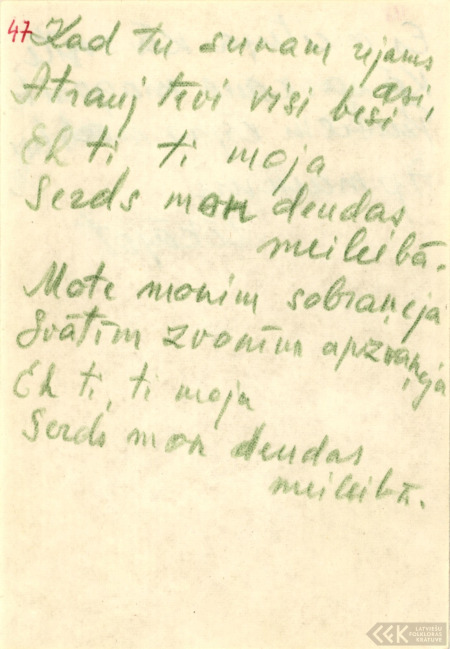 47 Kad tu sunam rejams
asi,
Atrauj tevi visi besi
Eh ti, ti moja
Serds mon deudas
meileibā.
Mote monim sobraņeja
Svātim zvonim apzvaņeja
Eh ti, ti moja
Serds mon deudas
meileibā.
LATVIEŠU
FOLKLORAS
KRĀTUVE